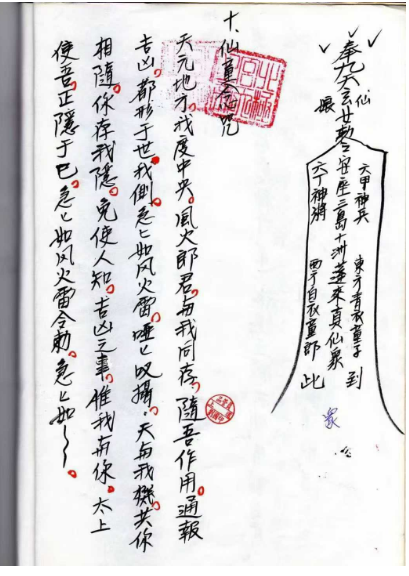 奉九天玄女勅令安座三島十洲蓬來真仙衆
仙
娘
六甲神兵 東方青衣童子 到
六丁神將 西方白衣童郎 此
十.仙童念咒
天元地才。我度中央。風火郎君。与我同存。隨吾作用。通報
吉凶。都形于世。我側。急匕如风火雷。哑匕叹攝。天与我機。共你
相隨。你存我隱。免使人知。吉凶之事。惟我与你。太上
使吾。正隱于已。急匕如风火雷令勅。急匕如〜〜。